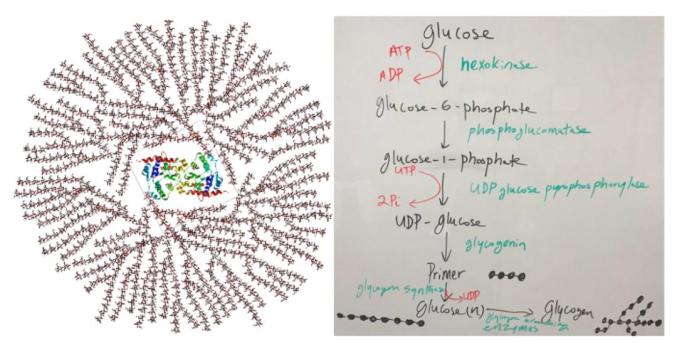 glucose
ATP
hexokinase
ADP
glucose-6-phosphate
phosphoglucomatase
glucose-1-phosphate
UTP
UDP glucose pyrophosphorylase
2Pi
UDP-glucose
glycogenin
Primer
glycogen synthase
UDP
Glucose(n)
Glycogen
glycogen
enzymes